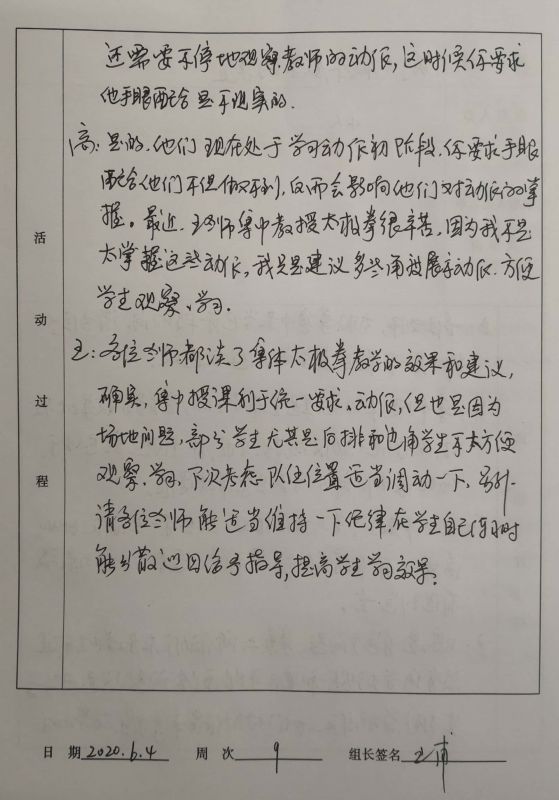 还需要不停地观察教师的动作,这时候你要求
他手眼配合是不现实的.
高:是的.他们现在处于学习动作初阶段.你要求手眼
配合他们不但做不到,反而会影响他们对动作的掌
握。最近.王老师集中教授太极拳很辛苦.因为我不是
太掌握这些动作,我只是建议多些角度展示动作.方便
学生观察、学习.
王:各位老师都谈了集体太极拳教学的效果和建议,
确实,集中授课利于统一要求、动作,但也是因为
场地问题,部分学生尤其是后排和边角学生不太方便
观察、学习,下次考虑队伍位置适当调动一下、另外
请各位老师能适当维持一下纪律.在学生自己练时
能分散巡回给予指导,提高学生学习效果.
活
动
过
程
日 期 2020.6.4 周 次 9 组长签名 王